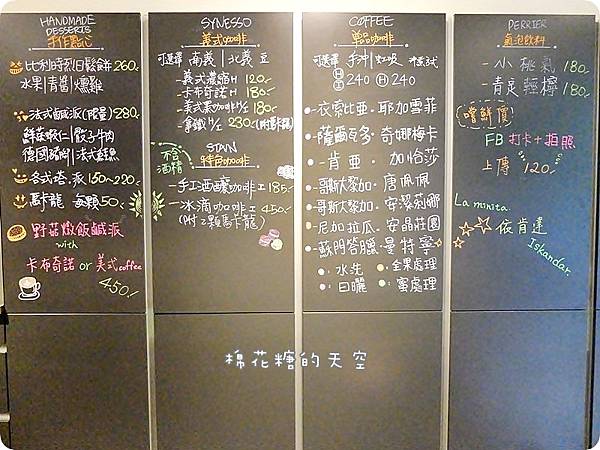 HANDMADE
DESSERTS
手作點心
比利時列日鬆餅 260.
水果|青醬|燻雞
法式鹹派(限量) 280.
鮮菇蝦仁|骰子牛肉
德國豬腳|法式
各式塔.派 150~220.
馬卡龍 每顆50.
野菇燉飯鹹派
with
卡布奇諾 or 美式coffee
450/.
SYNESSO
義式咖啡
可選擇 南義|北義 豆
-義式濃縮H 120/.
-卡布奇諾H 180/.
-美式黑咖啡H/I 180/.
-拿鐵H/I 230/.
不含酒精
STANN
特色咖啡
-手工酒釀咖啡I 185/.
-冰滴咖啡I 450/.
(附2顆馬卡龍)
COFFEE
單品咖啡
可選擇 手沖|虹吸
H I 240 H 240
衣索比亞.耶加雪菲
薩爾瓦多.奇娜梅卡
肯亞.加恰莎
哥斯大黎加.唐佩佩
哥斯大黎加.安瑟利娜
尼加拉瓜.安晶莊園
蘇門答臘.曼特寧
:水洗 :全果處理
:日曬 :蜜處理
PERRIER
氣泡飲料
-小秘氣 180/.
-青定輕檸 180/.
嚐鮮價
FB 打卡+拍照
上傳 120/.
La minita
依肯達
Iskandar.
棉花糖的天空